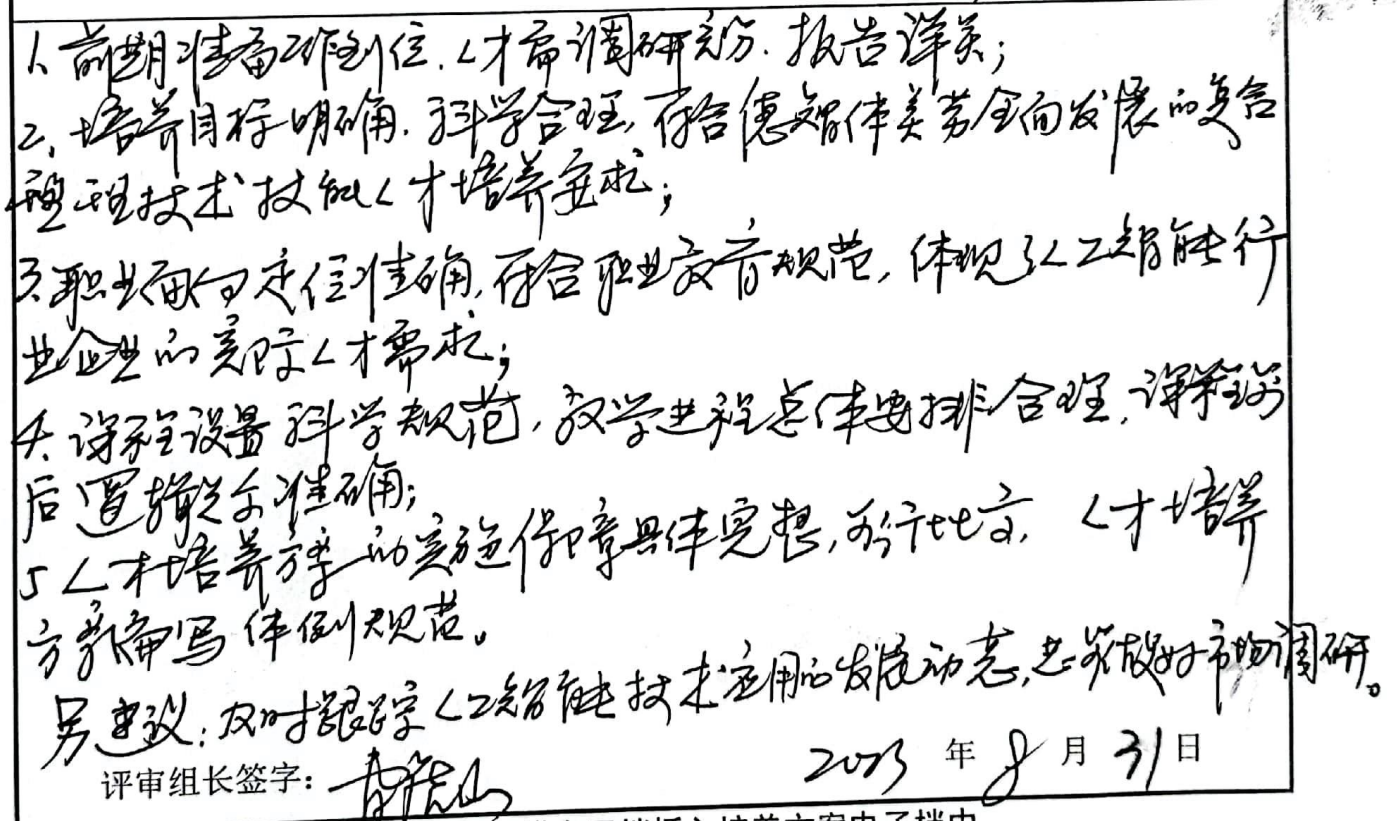 1、前期准备工作到位,人才需调研充分,报告详实;
2、培养目标明确,科学合理,符合德智体美劳全面发展的复合
型 技术技能人才培养要求;
3、职业面向定位准确,符合职业教育规范,体现了人工智能行
业企业的实际人才需求;
4、课程设置科学规范,教学进程总体安排合理,课程前
后逻辑关系准确;
5 人才培养方案的实施保障具体完整,可行性高,人才培养
方案编写体例规范。
另建议:及时跟踪人工智能技术应用的发展动态,做好市场调研。
评审组长签字:
2023 年 8 月 31 日